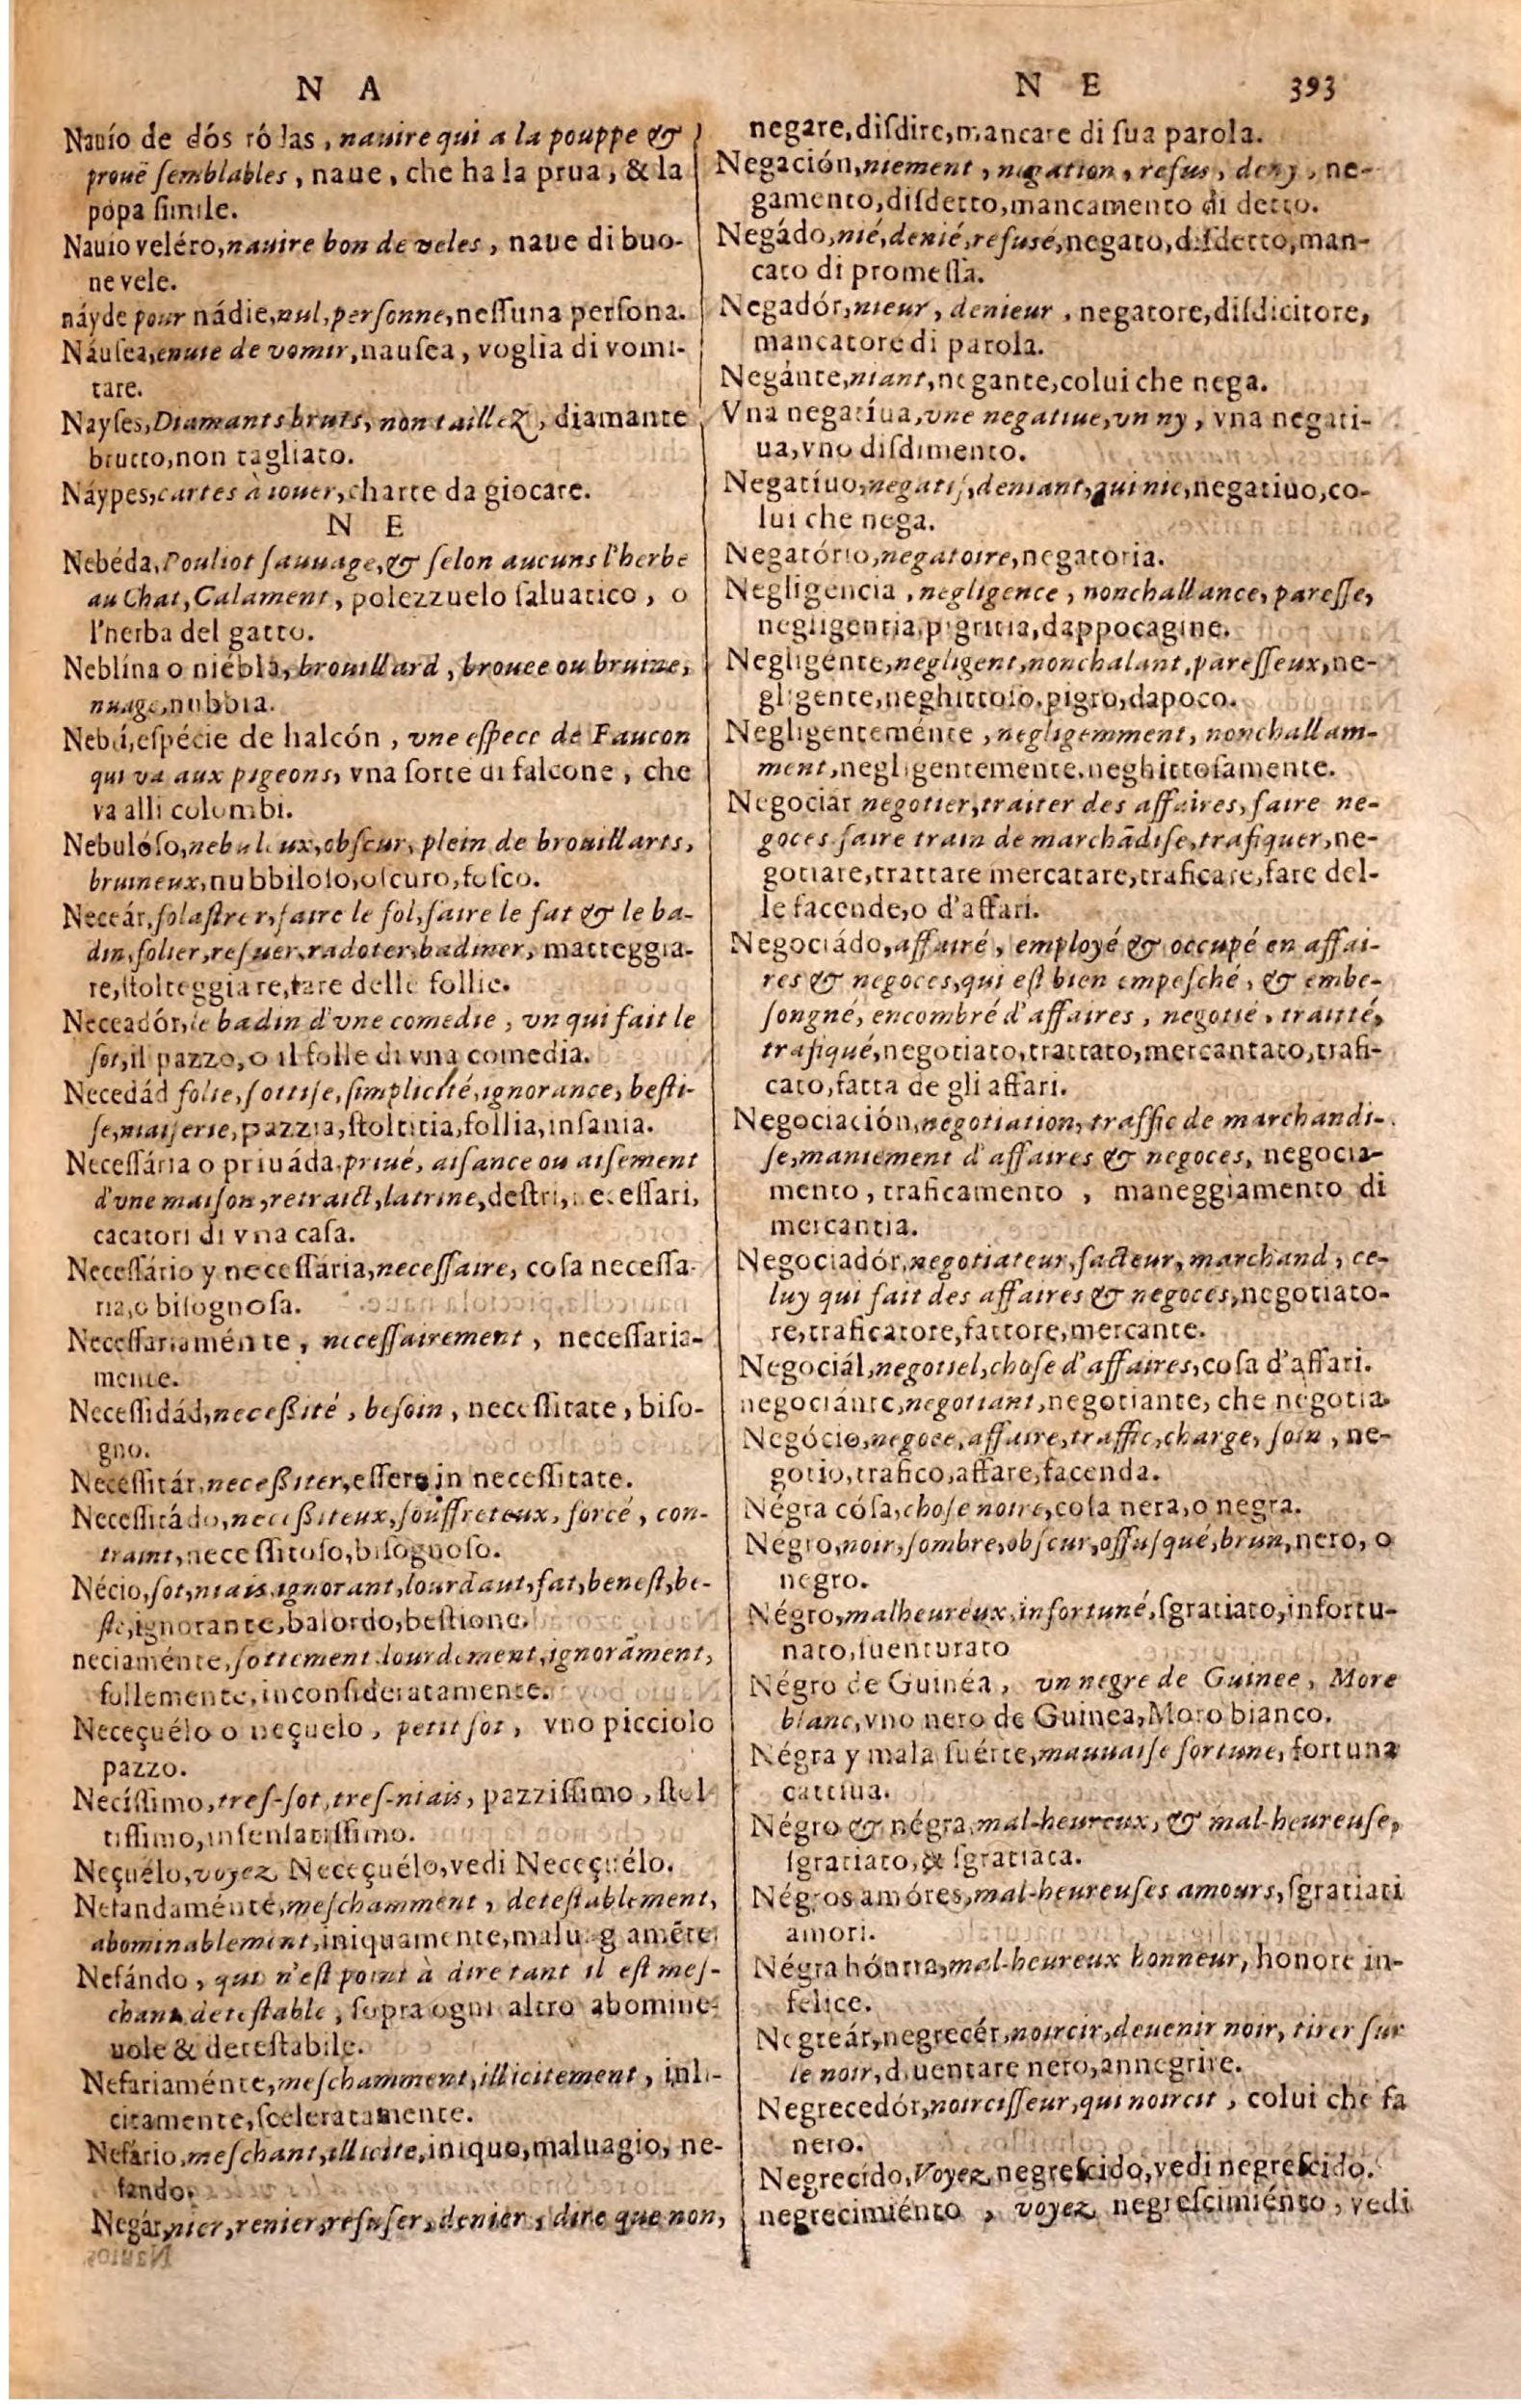 N A
Nauío de dós ró las, nauire qui a la pouppe &
prouë ſemblables, naue, che ha la prua, & la
popa ſimile.
Nauio veléro, nauire bon de veles, naue di buo-
ne vele.
náyde pour nádie, nul, perſonne, neſſuna perſona.
Náuſea, enuie de vomir, nauſea, voglia di vomi-
tare.
Nayſes, Diamants bruts, non taillez, diamante
brutto, non tagliato.
Náypes, cartes à iouer, charte da giocare.
N E
Nebéda, Pouliot ſauuage, & ſelon aucuns l'herbe
au Chat, Calament, polezzuelo ſaluatico, o
l'herba del gatto.
Neblína o niébla, brouillard, brouee ou bruine,
nuage, nubbia.
Neblí, eſpécie de halcón, vne eſpece de Faucon
qui va aux pigeons, vna ſorte di falcone, che
va alli colombi.
Nebulóſo, nebuleux, obſcur, plein de brouillarts,
bruineux, nubbiloſo, oſcuro, foſco.
Neceár, folaſtrer, faire le fol, faire le fat & le ba-
din, folier, reſuer, radoter, badiner, matteggia-
re, ſtolteggiare, fare delle follie.
Neceadór, le badin d'vne comedie, vn qui fait le
ſot, il pazzo, o il folle di vna comedia.
Necedád folie, ſottiſe, ſimplicité, ignorance, beſti-
ſe, niaiſerie, pazzia, ſtoltitia, follia, inſania.
Neceſſária o priuáda, priué, aiſance ou aiſement
d'vne maiſon, retraict, latrine, deſtri, neceſſari,
cacatori di vna caſa.
Neceſſário y neceſſária, neceſſaire, coſa neceſſa-
ria, o biſognoſa.
Neceſſariaménte, neceſſairement, neceſſaria-
mente.
Neceſſidád, neceßité, beſoin, neceſſitate, biſo-
gno.
Neceſſitár, neceßiter, eſſere in neceſſitate.
Neceſſitádo, neceßiteux, ſouffreteux, forcé, con-
traint, neceſſitoſo, biſognoſo.
Nécio, ſot, niais, ignorant, lourdaut, fat, beneſt, be-
ſte, ignorante, balordo, beſtione.
neciaménte, ſottement, lourdement, ignorãment,
follemente, inconſideratamente.
Neceçuélo o neçuelo, petit ſot, vno picciolo
pazzo.
Necíſſimo, treſ-ſot, treſ-niais, pazziſſimo, ſtol
tiſſimo, inſenſatiſſimo.
Neçuélo, voyez Neceçuélo, vedi Neceçuélo.
Nefandaménte, meſchamment, deteſtablement,
abominablement, iniquamente, maluagiamẽte
Nefándo, qui n'eſt point à dire tant il eſt meſ-
chant deteſtable, ſopra ogni altro abomine-
uole & deteſtabile.
Nefariaménte, meſchamment, illicitement, inli-
citamente, ſceleratamente.
Nefário, meſchant, illicite, iniquo, maluagio, ne-
fando.
Negár, nier, renier, refuſer, denier, dire que non,
N E 393
negare, diſdire, mancare di ſua parola.
Negación, niement, negation, refus, deny, ne-
gamento, diſdetto, mancamento di detto.
Negádo, nié, denié, refusé, negato, diſdetto, man-
cato di promeſſa.
Negadór, nieur, denieur, negatore, diſdicitore,
mancatore di parola.
Negánte, niant, negante, colui che nega.
Vna negatíua, vne negatiue, vn ny, vna negati-
ua, vno diſdimento.
Negatíuo, negatif, deniant, qui nie, negatiuo, co-
lui che nega.
Negatório, negatoire, negatoria.
Negligencia, negligence, nonchallance, pareſſe,
negligentia, pigritia, dappocagine.
Negligénte, negligent, nonchalant, pareſſeux, ne-
gligente, neghittoſo, pigro, dapoco.
Negligenteménte, negligemment, nonchallam-
ment, negligentemente, neghittoſamente.
Negociár negotier, traiter des affaires, faire ne-
goces faire train de marchãdiſe, trafiquer, ne-
gotiare, trattare mercatare, traficare, fare del-
le facende, o d'affari.
Negociádo, affairé, employé & occupé en affai-
res & negoces, qui eſt bien empeſché, & embe-
ſongné, encombré d'affaires, negotié, traitté,
trafiqué, negotiato, trattato, mercantato, trafi-
cato, fatta de gli affari.
Negociación, negotiation, traffic de marchandi-
ſe, maniement d'affaires & negoces, negocia-
mento, traficamento, maneggiamento di
mercantia.
Negociadór, negotiateur, facteur, marchand, ce-
luy qui fait des affaires & negoces, negotiato-
re, traficatore, fattore, mercante.
Negociál, negotiel, choſe d'affaires, coſa d'affari.
negociánte, negotiant, negotiante, che negotia.
Negócio, negoce, affaire, traffic, charge, ſoin, ne-
gotio, trafico, affare, facenda.
Négra cóſa, choſe noire, coſa nera, o negra.
Négro, noir, ſombre, obſcur, offuſqué, brun, nero, o
negro.
Négro, malheureux, infortuné, ſgratiato, infortu-
nato, ſuenturato
Négro de Guinéa, vn negre de Guinee, More
blanc, vno nero de Guinea, Moro bianco.
Négra y mala ſuérte, mauuaiſe fortune, fortuna
cattiua.
Négro & négra, mal-heureux, & mal-heureuſe,
ſgratiato, & ſgratiata.
Négros amóres, mal-heureuſes amours, ſgratiati
amori.
Négra hónrra, mal-heureux honneur, honore in-
felice.
Negreár, negrecér, noircir, deuenir noir, tirer ſur
le noir, diuentare nero, annegrire.
Negrecedór, noirciſſeur, qui noircit, colui che fa
nero.
Negrecído, Voyez negreſcido, vedi negreſcido.
negrecimiénto, voyez negreſcimiénto, vedi